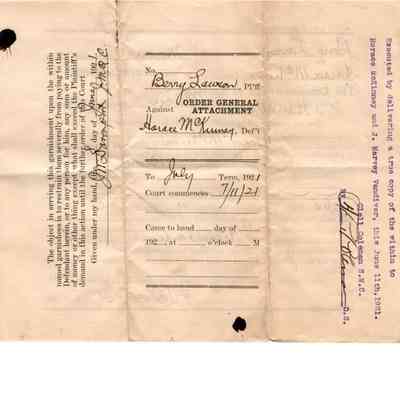 The object in serving this garnishment upon the within
named garnishees is to restrain them severally from paying to the
Defendant herein, or to any person for him, any sum or amount
of money or other thing except what shall exceed the Plaintiff's
demand in this action until the further order of this Court.
Given under my hand, day of 192
No.
Berry Lawson, Pl'ff
Against ORDER GENERAL
ATTACHMENT
Horace McKinney, Def't
To July Term, 1921
Court commences 7/11/21
Came to hand day of
192 , at o'clock M
Executed by delivering a true copy of the within to
Horace mckinney and J. Harvey Vandiver, this June 11th, 1921.
Coleman S.W.C.
By D.S.